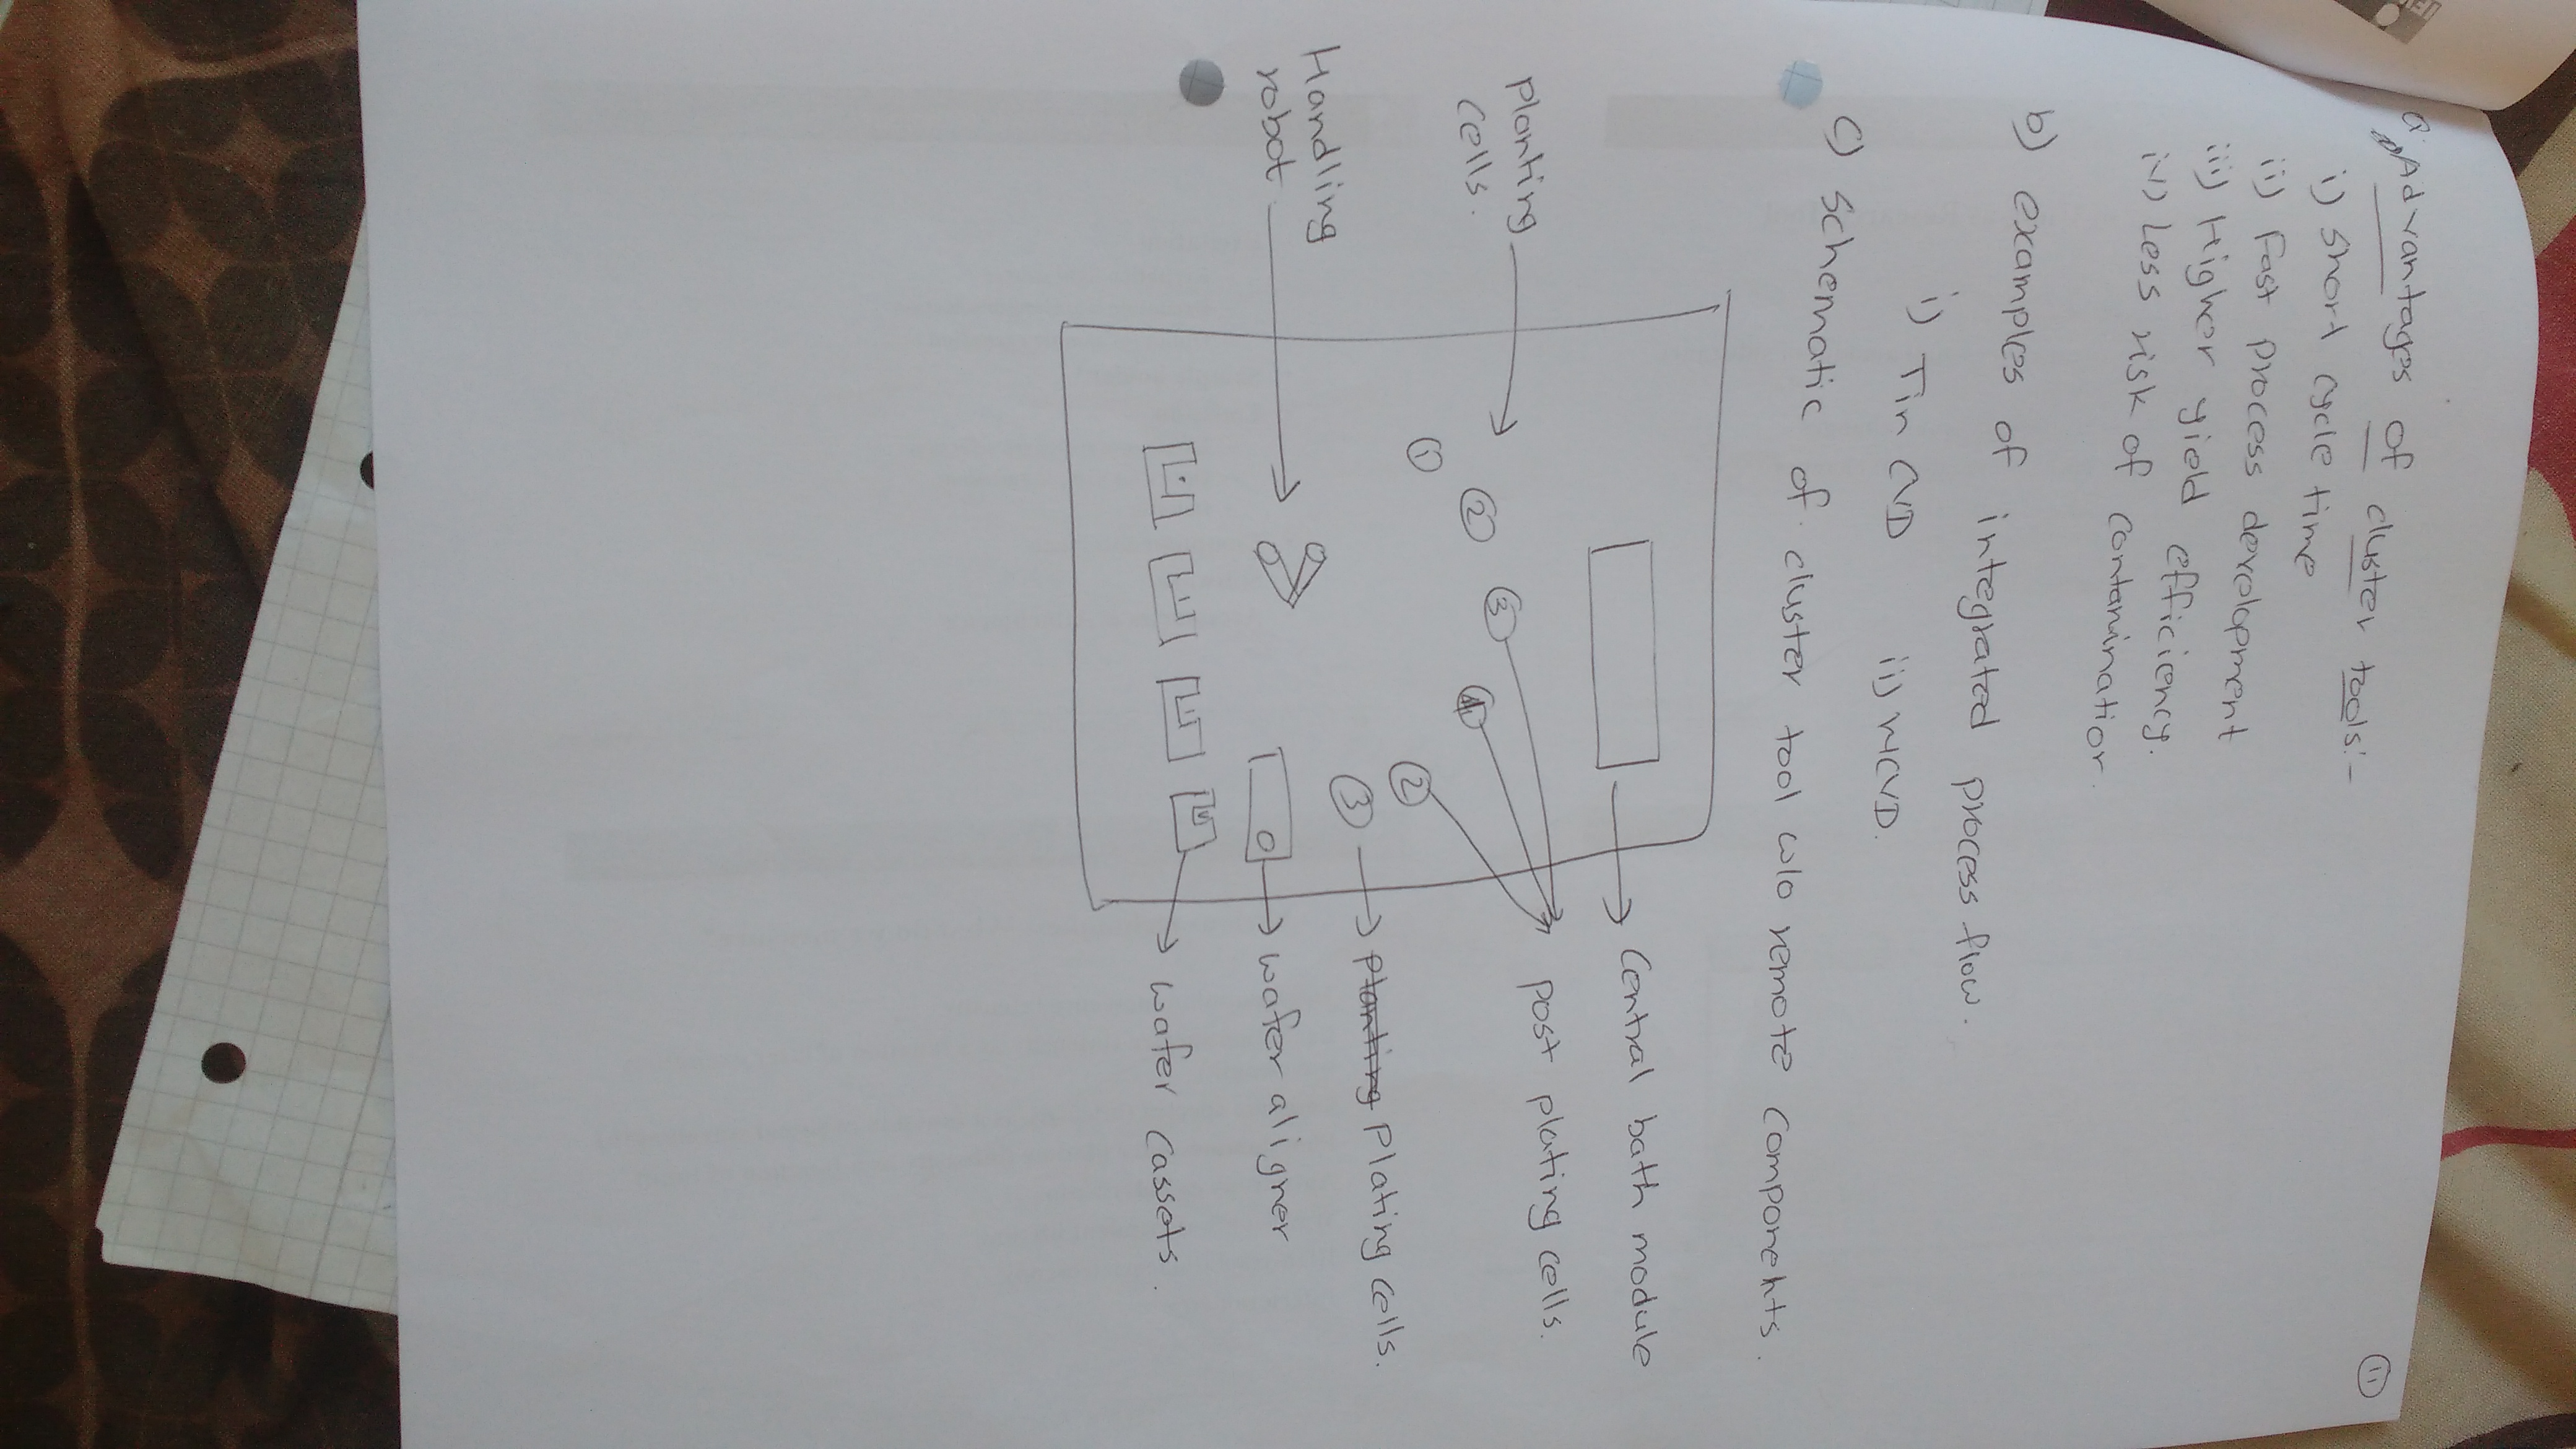 11
a. Advantages of cluster tools:-
i) Short cycle time
ii) Fast process development
iii) Higher yield efficiency.
iv) Less risk of contamination.
b) examples of integrated process flow.
i) Tin CVD ii) WCVD.
c) Schematic of cluster tool w/o remote components.
Central bath module
Planting
cells.
post plating cells.
1
2
3
2
3
Planting Plating cells.
Handling
robot
wafer aligner
wafer cassets.